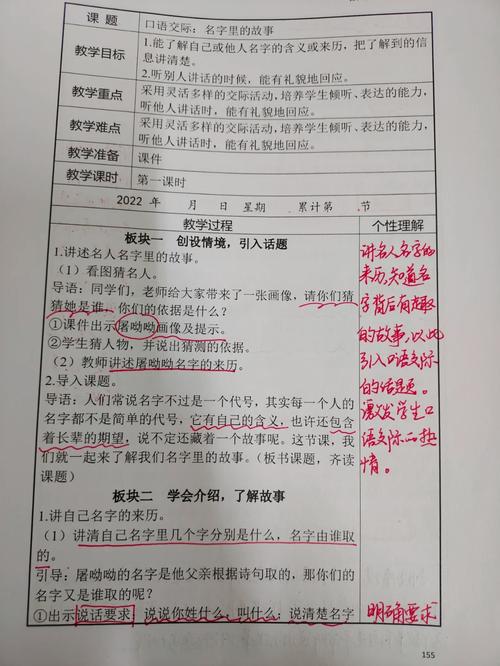 课 题
口语交际：名字里的故事
教学目标
1.能了解自己或他人名字的含义或来历，把了解到的信
息讲清楚。
2.听别人讲话的时候，能有礼貌地回应。
教学重点
采用灵活多样的交际活动，培养学生倾听、表达的能力，
听他人讲话时，能有礼貌地回应。
教学难点
采用灵活多样的交际活动，培养学生倾听、表达的能力，
听他人讲话时，能有礼貌地回应。
教学准备
课件
教学课时
第一课时
2022 年 月 日 星期 累计第 节
教学过程
个性理解
板块一 创设情境，引入话题
1.讲述名人名字里的故事。
（1）看图猜名人。
导语：同学们，老师给大家带来了一张画像，请你们猜
猜她是谁，你们的依据是什么？
①课件出示屠呦呦画像及提示。
②学生猜人物，并说出猜测的依据。
（2）教师讲述屠呦呦名字的来历。
2.导入课题。
导语：人们常说名字不过是一个代号，其实每一个人的
名字都不是简单的代号，它有自己的含义，也许还包含
着长辈的期望，说不定还藏着一个故事呢。这节课，我
们就一起来了解我们名字里的故事。（板书课题，齐读
课题）
讲名人名字的
来历，知道名
字背后有趣
的故事，以此
引入口语交际
的话题。
激发学生口
语交际的热
情。
板块二 学会介绍，了解故事
1.讲自己名字的来历。
（1）讲清自己名字里几个字分别是什么，名字由谁取
的。
引导：屠呦呦的名字是他父亲根据诗句取的，那你们的
名字又是谁取的呢？
①出示说话要求：说说你姓什么，叫什么；说清楚名字
明确要求
155